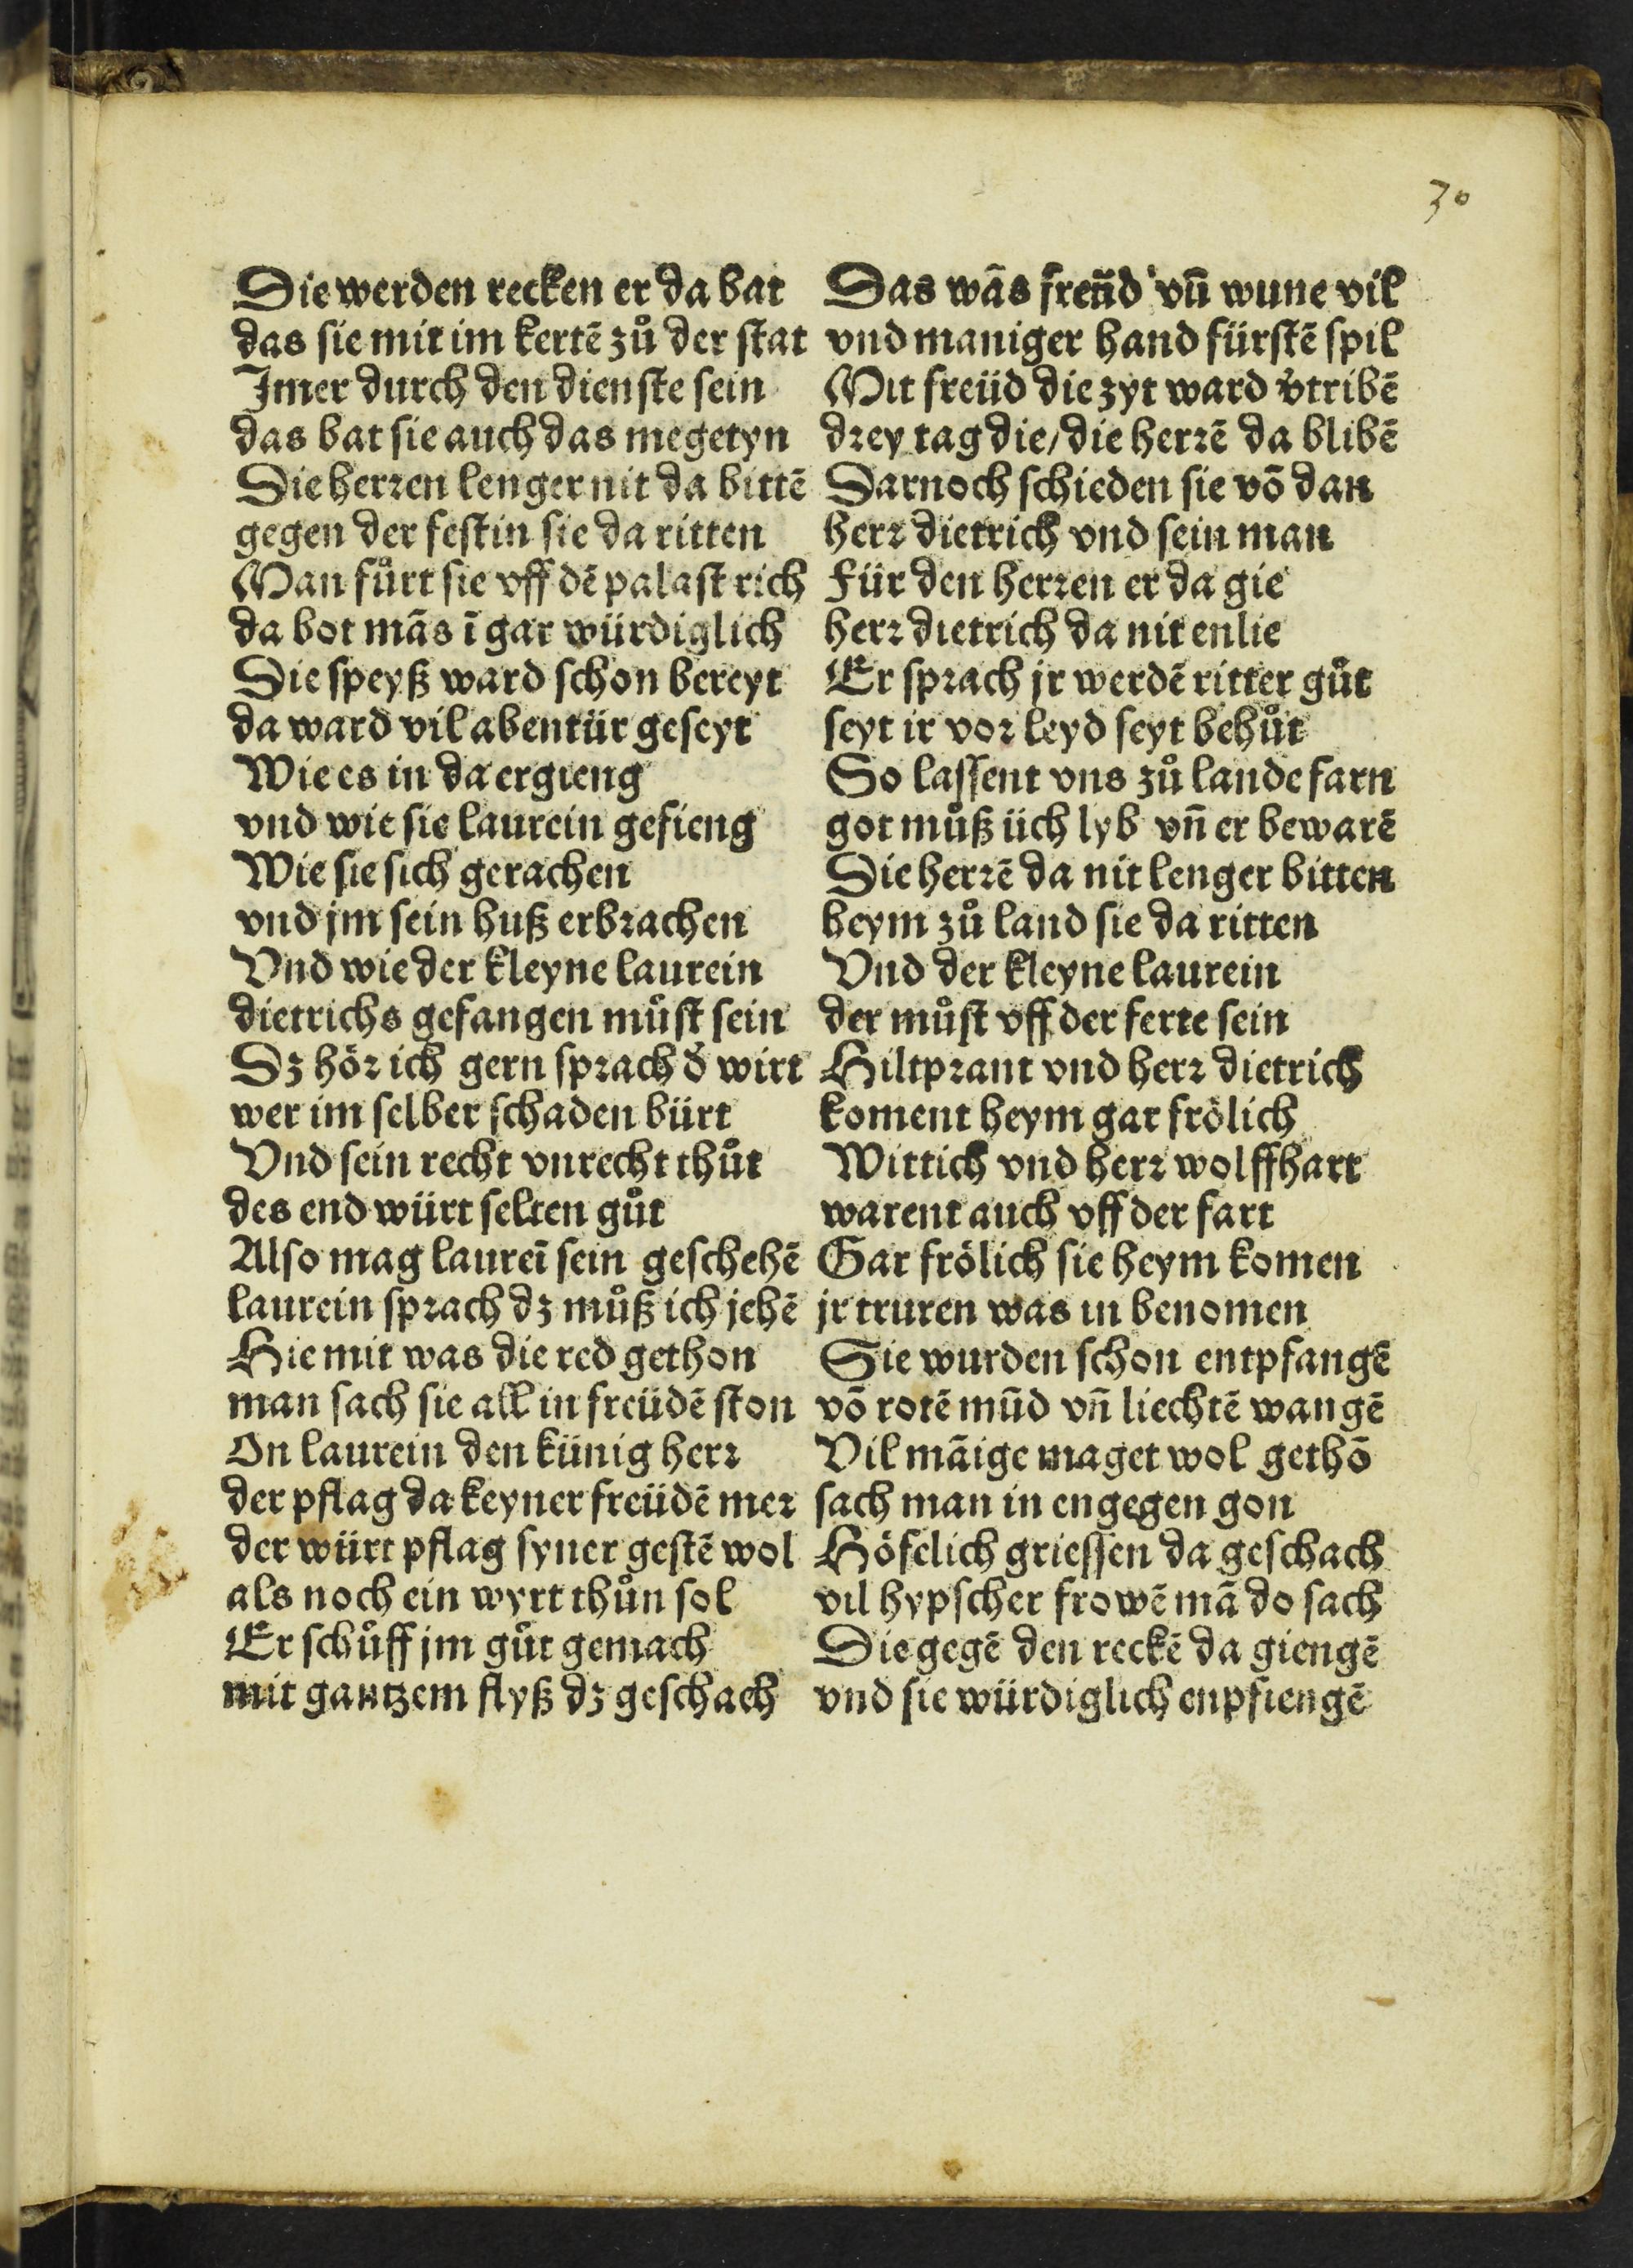 30
Die werden recken er da bat
das sie mit im kertē zů der stat
Imer durch den dienste sein
das bat sie auch das megetyn
Die herren lenger nit da bittē
gegen der festin sie da ritten
Man fůrt sie vff dē palast rich
da bot mās ī gar würdiglich
Die speyß ward schon bereyt
da ward vil abentür geseyt
Wie es in da ergieng
vnd wie sie laurein gefieng
Wie sie sich gerachen
vnd jm sein huß erbrachen
Vnd wie der kleyne laurein
dietrichs gefangen můst sein
Dz hör ich gern sprach d̄ wirt
wer im selber schaden bürt
Vnd sein recht vnrecht thůt
des end würt selten gůt
Also mag laureī sein geschehē
laurein sprach dz můß ich jehē
Hie mit was die red gethon
man sach sie all in freüdē ston
On laurein den künig herr
der pflag da keyner freüdē mer
der würt pflag syner gestē wol
als noch ein wyrt thůn sol
Er schůff jm gůt gemach
mit gantzem flyß dz geschach
Das wās freñd vñ wune vil
vnd maniger hand fürstē spil
Mit freüd die zyt ward v̄tribē
drey tag die/die herrē da blibē
Darnoch schieden sie vō dan
herr dietrich vnd sein man
Für den herren er da gie
herr dietrich da nit enlie
Er sprach jr werdē ritter gůt
seyt ir vor leyd seyt behůt
So lassent vns zů lande farn
got můß üch lyb vñ er bewarē
Die herrē da nit lenger bitten
heym zů land sie da ritten
Vnd der kleyne laurein
der můst vff der ferte sein
Hiltprant vnd herr dietrich
koment heym gar frölich
Wittich vnd herr wolffhart
warent auch vff der fart
Gar frölich sie heym komen
jr truren was in benomen
Sie wurden schon entpfangē
vō rotē mūd vñ liechtē wangē
Vil māige maget wol gethō
sach man in engegen gon
Höfelich griessen da geschach
vil hypscher frowē mā do sach
Die gegē den reckē da giengē
vnd sie würdiglich enpfiengē